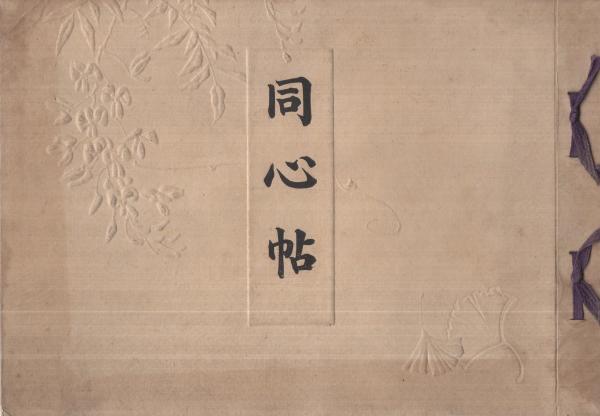 同心帖